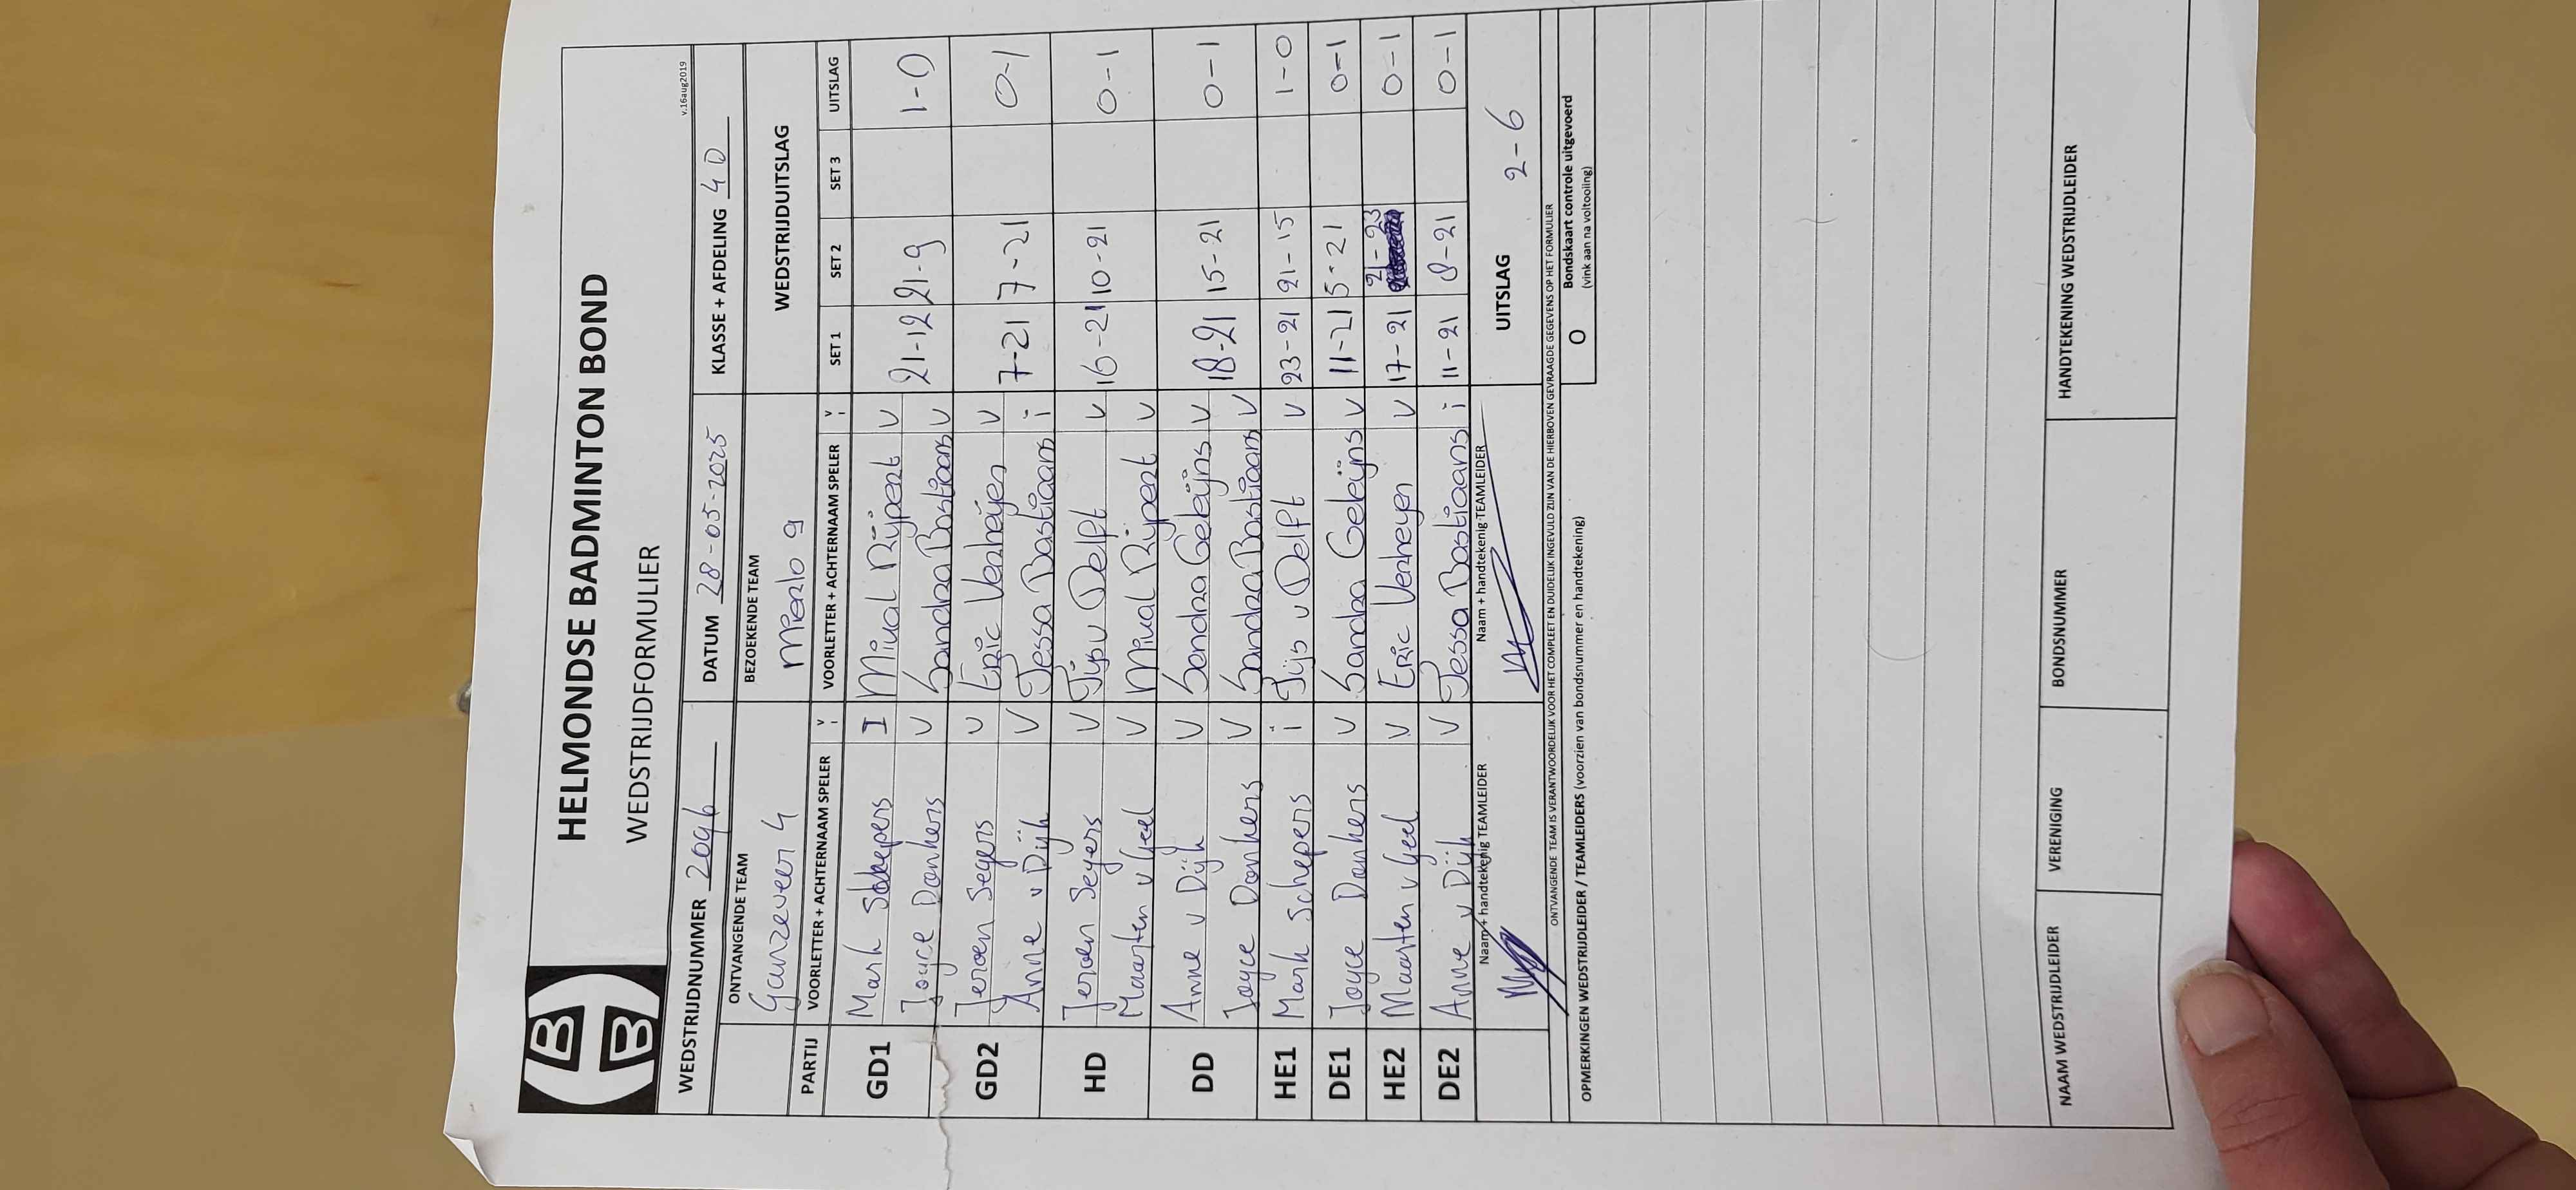 HELMONDSE BADMINTON BOND
WEDSTRIJDFORMULIER
v.16aug2019
WEDSTRIJDNUMMER 2096 DATUM 28-05-2025 KLASSE + AFDELING 4D
ONTVANGENDE TEAM BEZOEKENDE TEAM WEDSTRIJDUITSLAG
Ganzeveer 4 Mierlo 9
PARTIJ VOORLETTER + ACHTERNAAM SPELER V I VOORLETTER + ACHTERNAAM SPELER V I SET 1 SET 2 SET 3 UITSLAG
GD1 Mark Schepers I V
Joyce Donkers V Sandra Bastiaans V 21-12 21-9 1-0
GD2 Jeroen Segers V Eric Verheijen V
Anne v Dijk V Jessa Bastiaans i 7-21 7-21 0-1
HD Jeroen Segers V Tijs v Delft V 16-21 10-21 0-1
Maarten v Geel V V
DD Anne v Dijk V Sandra Geleijns V
Joyce Donkers V Sandra Bastiaans V 18-21 15-21 0-1
HE1 Mark Schepers i Tijs v Delft V 23-21 21-15 1-0
DE1 Joyce Donkers V Sandra Geleijns V 11-21 5-21 0-1
HE2 Maarten v Geel V Eric Verheyen V 17-21 21-23 0-1
DE2 Anne v Dijk V Jessa Bastiaans i 11-21 8-21 0-1
Naam + handtekenig TEAMLEIDER Naam + handtekenig TEAMLEIDER UITSLAG 2-6
ONTVANGENDE TEAM IS VERANTWOORDELIJK VOOR HET COMPLEET EN DUIDELIJK INGEVULD ZIJN VAN DE HIERBOVEN GEVRAAGDE GEGEVENS OP HET FORMULIER
OPMERKINGEN WEDSTRIJDLEIDER / TEAMLEIDERS (voorzien van bondsnummer en handtekening)
O Bondskaart controle uitgevoerd
(vink aan na voltooiing)
NAAM WEDSTRIJDLEIDER VERENIGING BONDSNUMMER HANDTEKENING WEDSTRIJDLEIDER